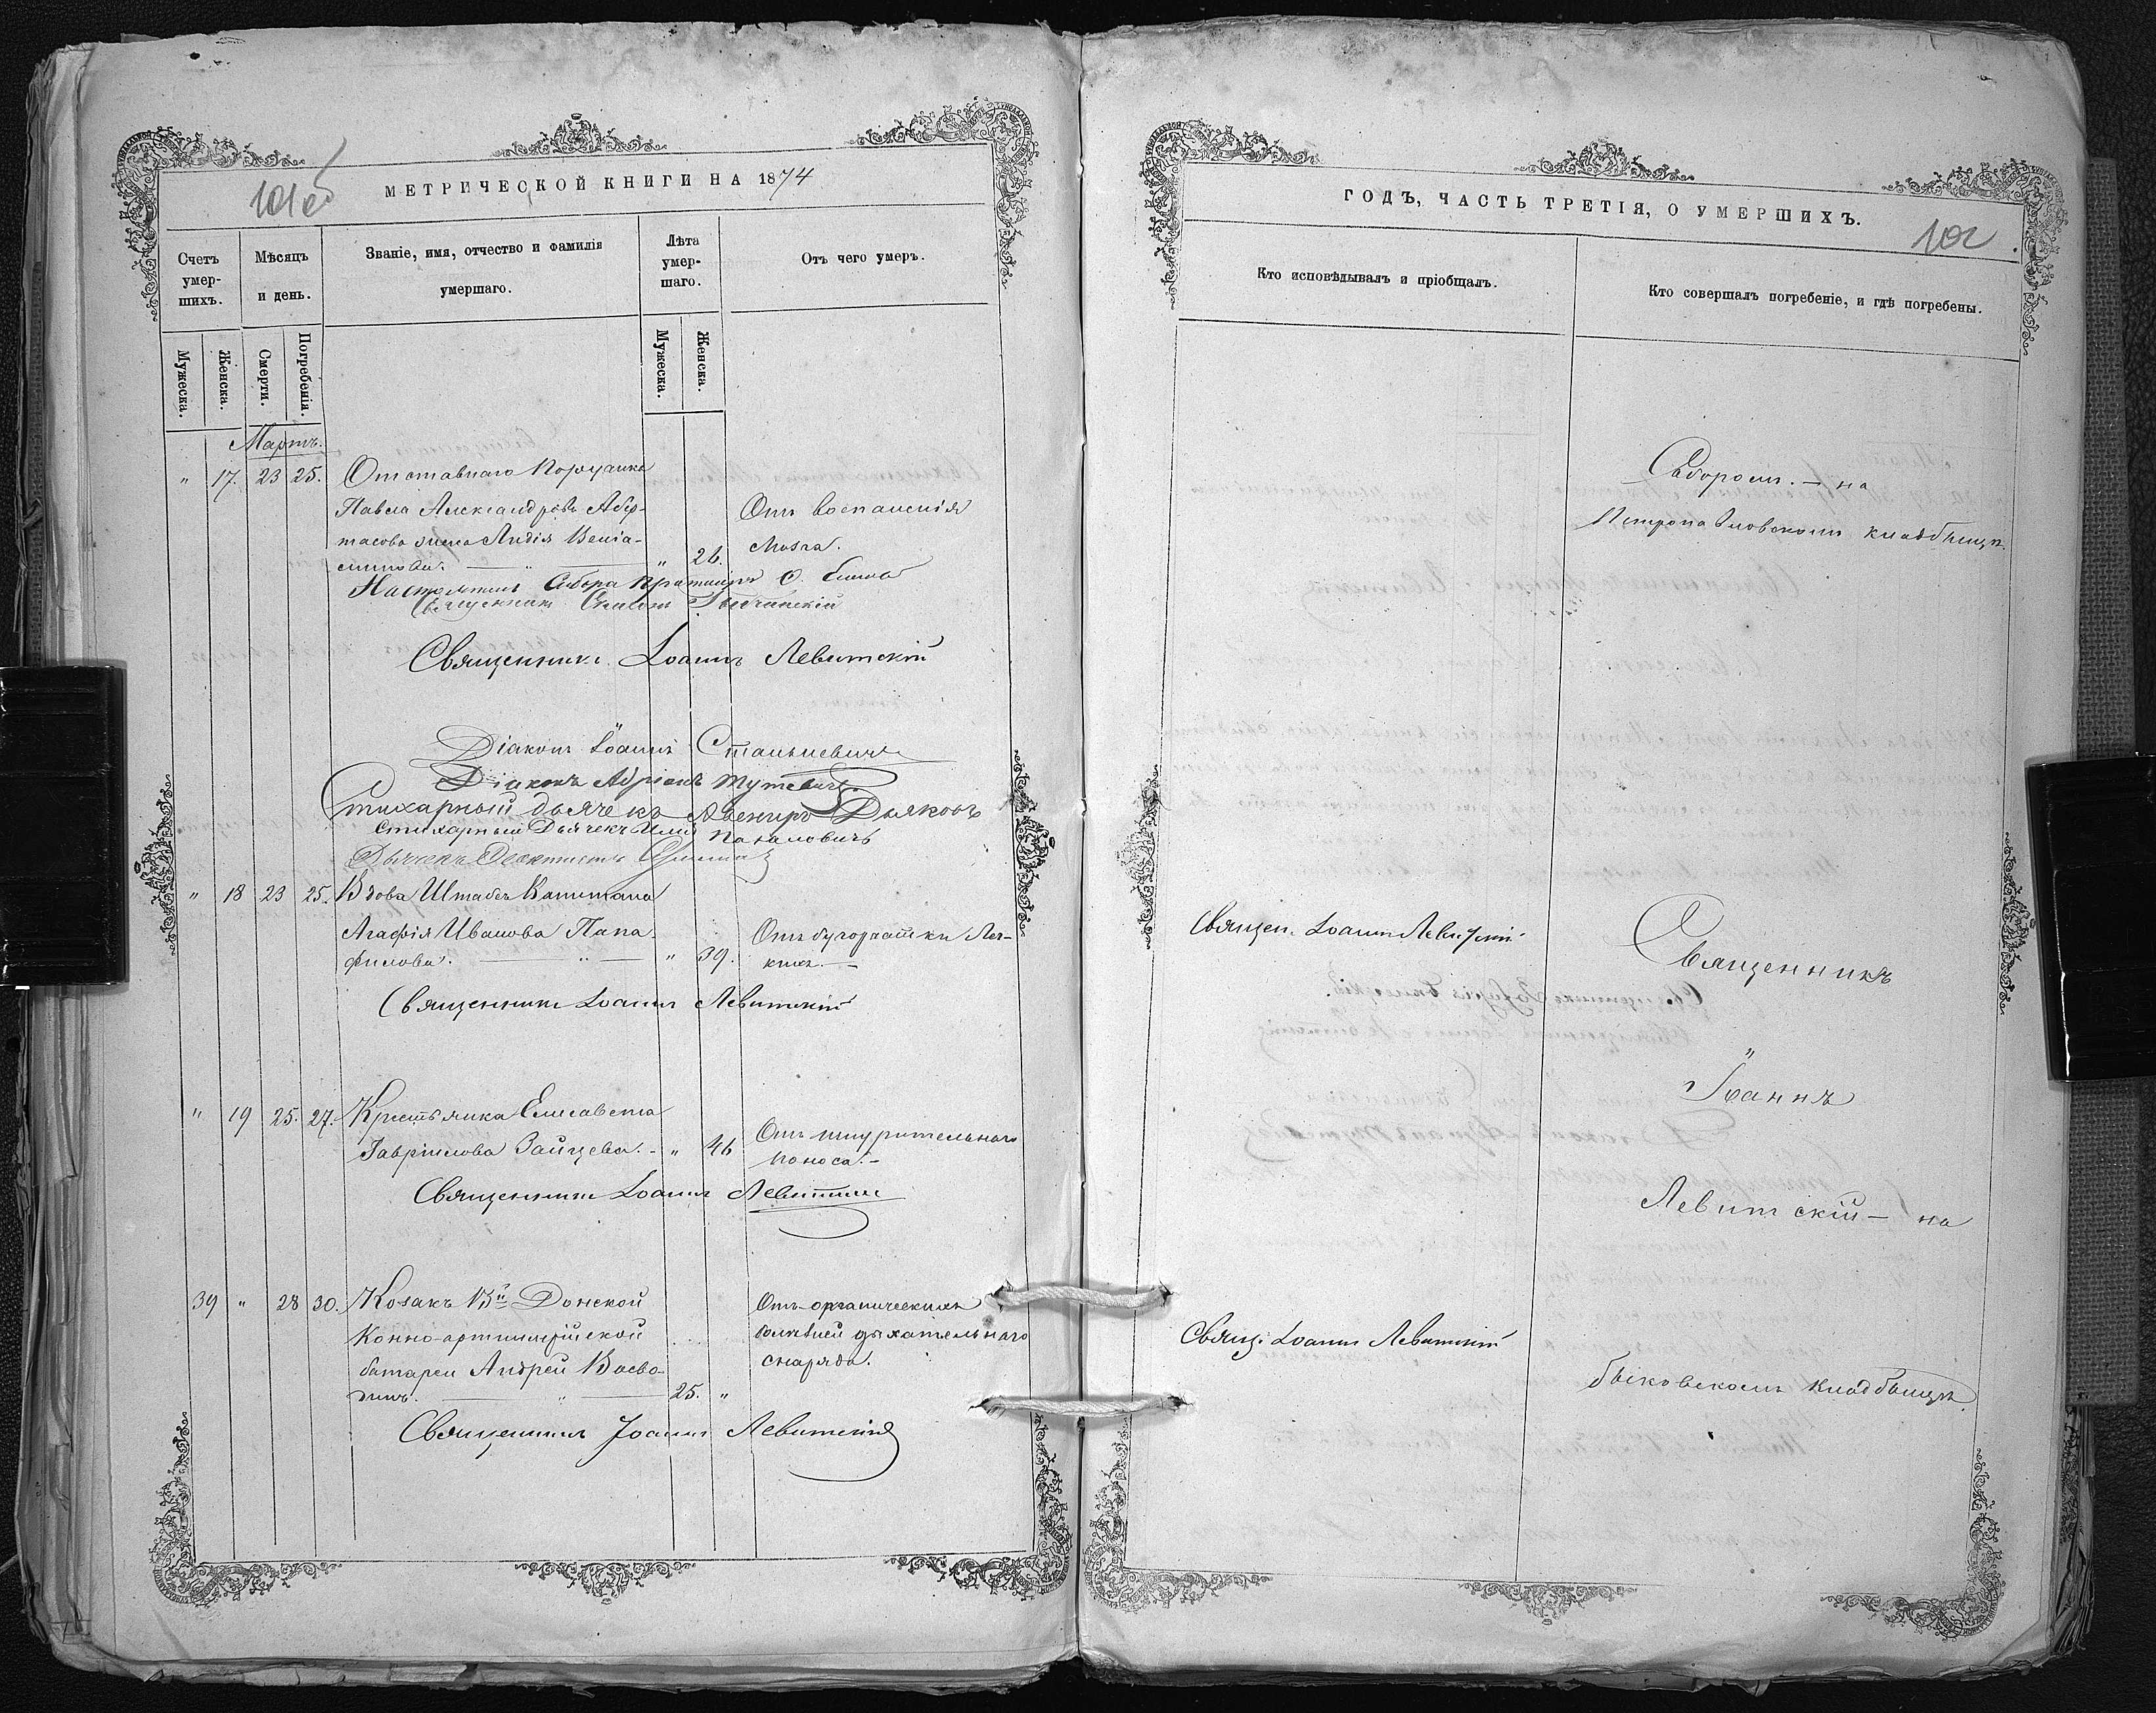 101об
МЕТРИЧЕСКОЙ КНИГИ НА 1874
Счетъ умер-шихъ.
Мѣсяцъ и день.
Званіе, имя, отчество и фамилія умершаго.
Лѣта умер-шаго.
Отъ чего умеръ.
Мужеска.
Женска.
Смерти.
Погребенія.
Мужеска.
Женска.
Мартъ.
" 17. 23 25. Отставнаго Поручика
Павла Александрова
Отъ воспаленія
тасова жена Лидія Веніа-
мозга.
минова. " 26.
Настоятель Собора Протоіерей
Священникъ
Священникъ Іоаннъ Левитскій
Діаконъ Іоаннъ Станкевичъ
Діаконъ Адріанъ Тутевичъ
Стихарный дьячекъ Авениръ Дьяковъ
Стихарный Дьячекъ
Дьячекъ Феоктистъ
" 18 23 25. Вдова Штабсъ Капитана
Агафія Иванова Пана-
Отъ бугорчатки Лег-
филова. " 39.
кихъ.
Священникъ Іоаннъ Левитскій
" 19 25. 27. Крестьянка Елисавета
Отъ изнурительнаго
Гавріилова Зайцева. - " 46
поноса. -
Священникъ Іоаннъ Левитскій
39 " 28 30. Козакъ Донской
Отъ органическихъ
Конно-артиллерійской
болѣзней дыхательнаго
батареи Андрей Воево-
снаряда.
динъ. " 25. "
Священникъ Іоаннъ Левитскій
ГОДЪ, ЧАСТЬ ТРЕТІЯ, О УМЕРШИХЪ.
102
Кто исповѣдывалъ и пріобщалъ.
Кто совершалъ погребеніе, и гдѣ погребены.
Соборомъ. - на
Петропавловскомъ кладбищѣ.
Священ. Іоаннъ Левитскій
Священникъ
Іоаннъ
Левитскій - на
Свящ. Іоаннъ Левитскій
быковскомъ кладбищѣ.